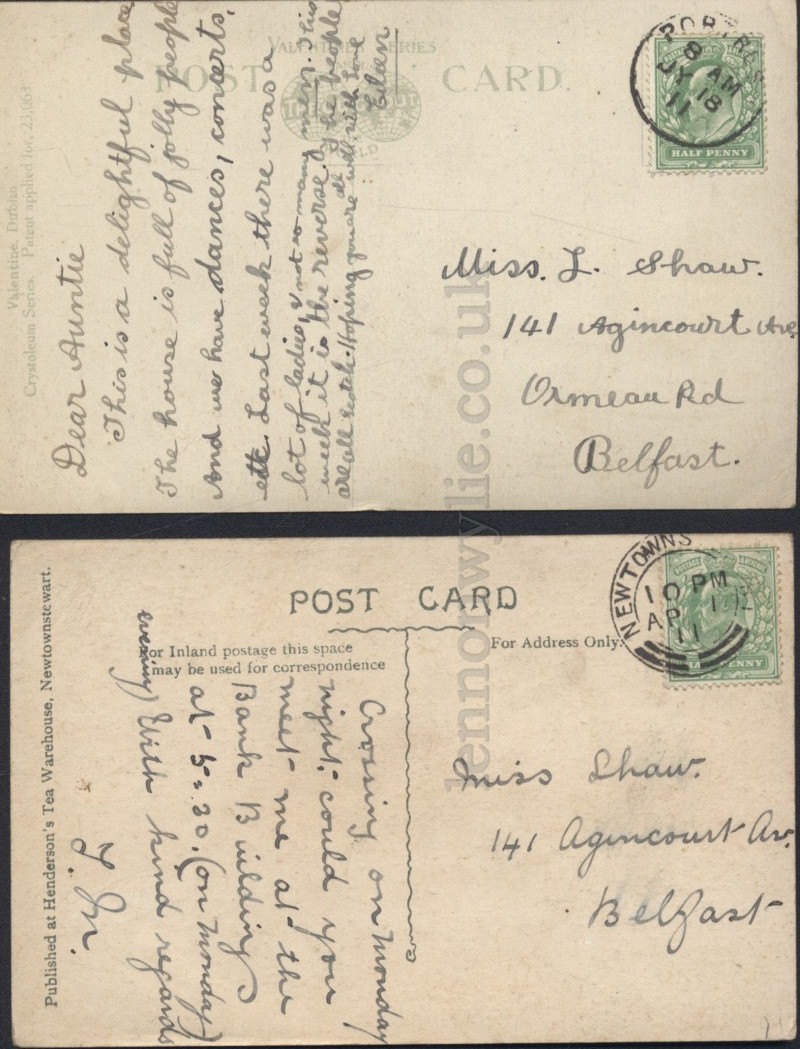 VALENTINE'S SERIES
POST CARD
Valentine. Dublin
Crystoleum Series. Patent applied for.
Dear Auntie
This is a delightful place
The house is full of jolly people
And we have dances, concerts,
etc Last week there was a
lot of ladies, & not so many men. This
week it is the reverse. The people
are all Scotch. Hoping you are all well. with love
Eileen
8 AM
JY 18
11
HALF PENNY
Miss. L. Shaw.
141 Agincourt Ave
Ormeau Rd
Belfast.
lennonwylie.co.uk
Published at Henderson's Tea Warehouse, Newtownstewart.
POST CARD
For Inland postage this space
may be used for correspondence
For Address Only.
NEWTOWNS
10 PM
AP
11
HALF PENNY
Crossing on Monday
night. could you
meet me at the
Bank Buildings
at 5=30. (on Monday
evening) With kind regards
Miss Shaw.
141 Agincourt Av.
Belfast